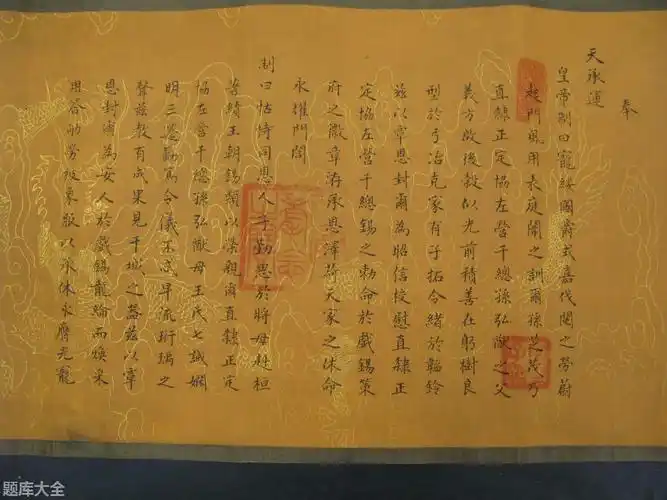 奉
天承運
皇帝制曰寵綏國爵式嘉伐閱之勞蔚
起門風用表庭闈之訓爾孫芝茂乃
直隸正定協左營千總孫弘猷之父
義方啟後穀似光前積善在躬樹良
型於弓冶克家有子拓令緒於韜鈐
茲以覃恩封爾為昭信校慰直隸正
定協左營千總錫之勅命於戲錫策
府之徽章洊承恩澤荷天家之休命
永耀門閭
制曰怙恃同恩人子勤思於將母赳桓
著績王朝錫類以榮親爾直隸正定
協左營千總孫弘猷母王氏七誡嫻
明三遷勵篤令儀不忒早流珩瑀之
聲慈教有成果見干城之器茲以覃
恩封爾為安人於戲錫龍綸而煥采
用答劬勞被象服以承休永膺光寵
题库大全